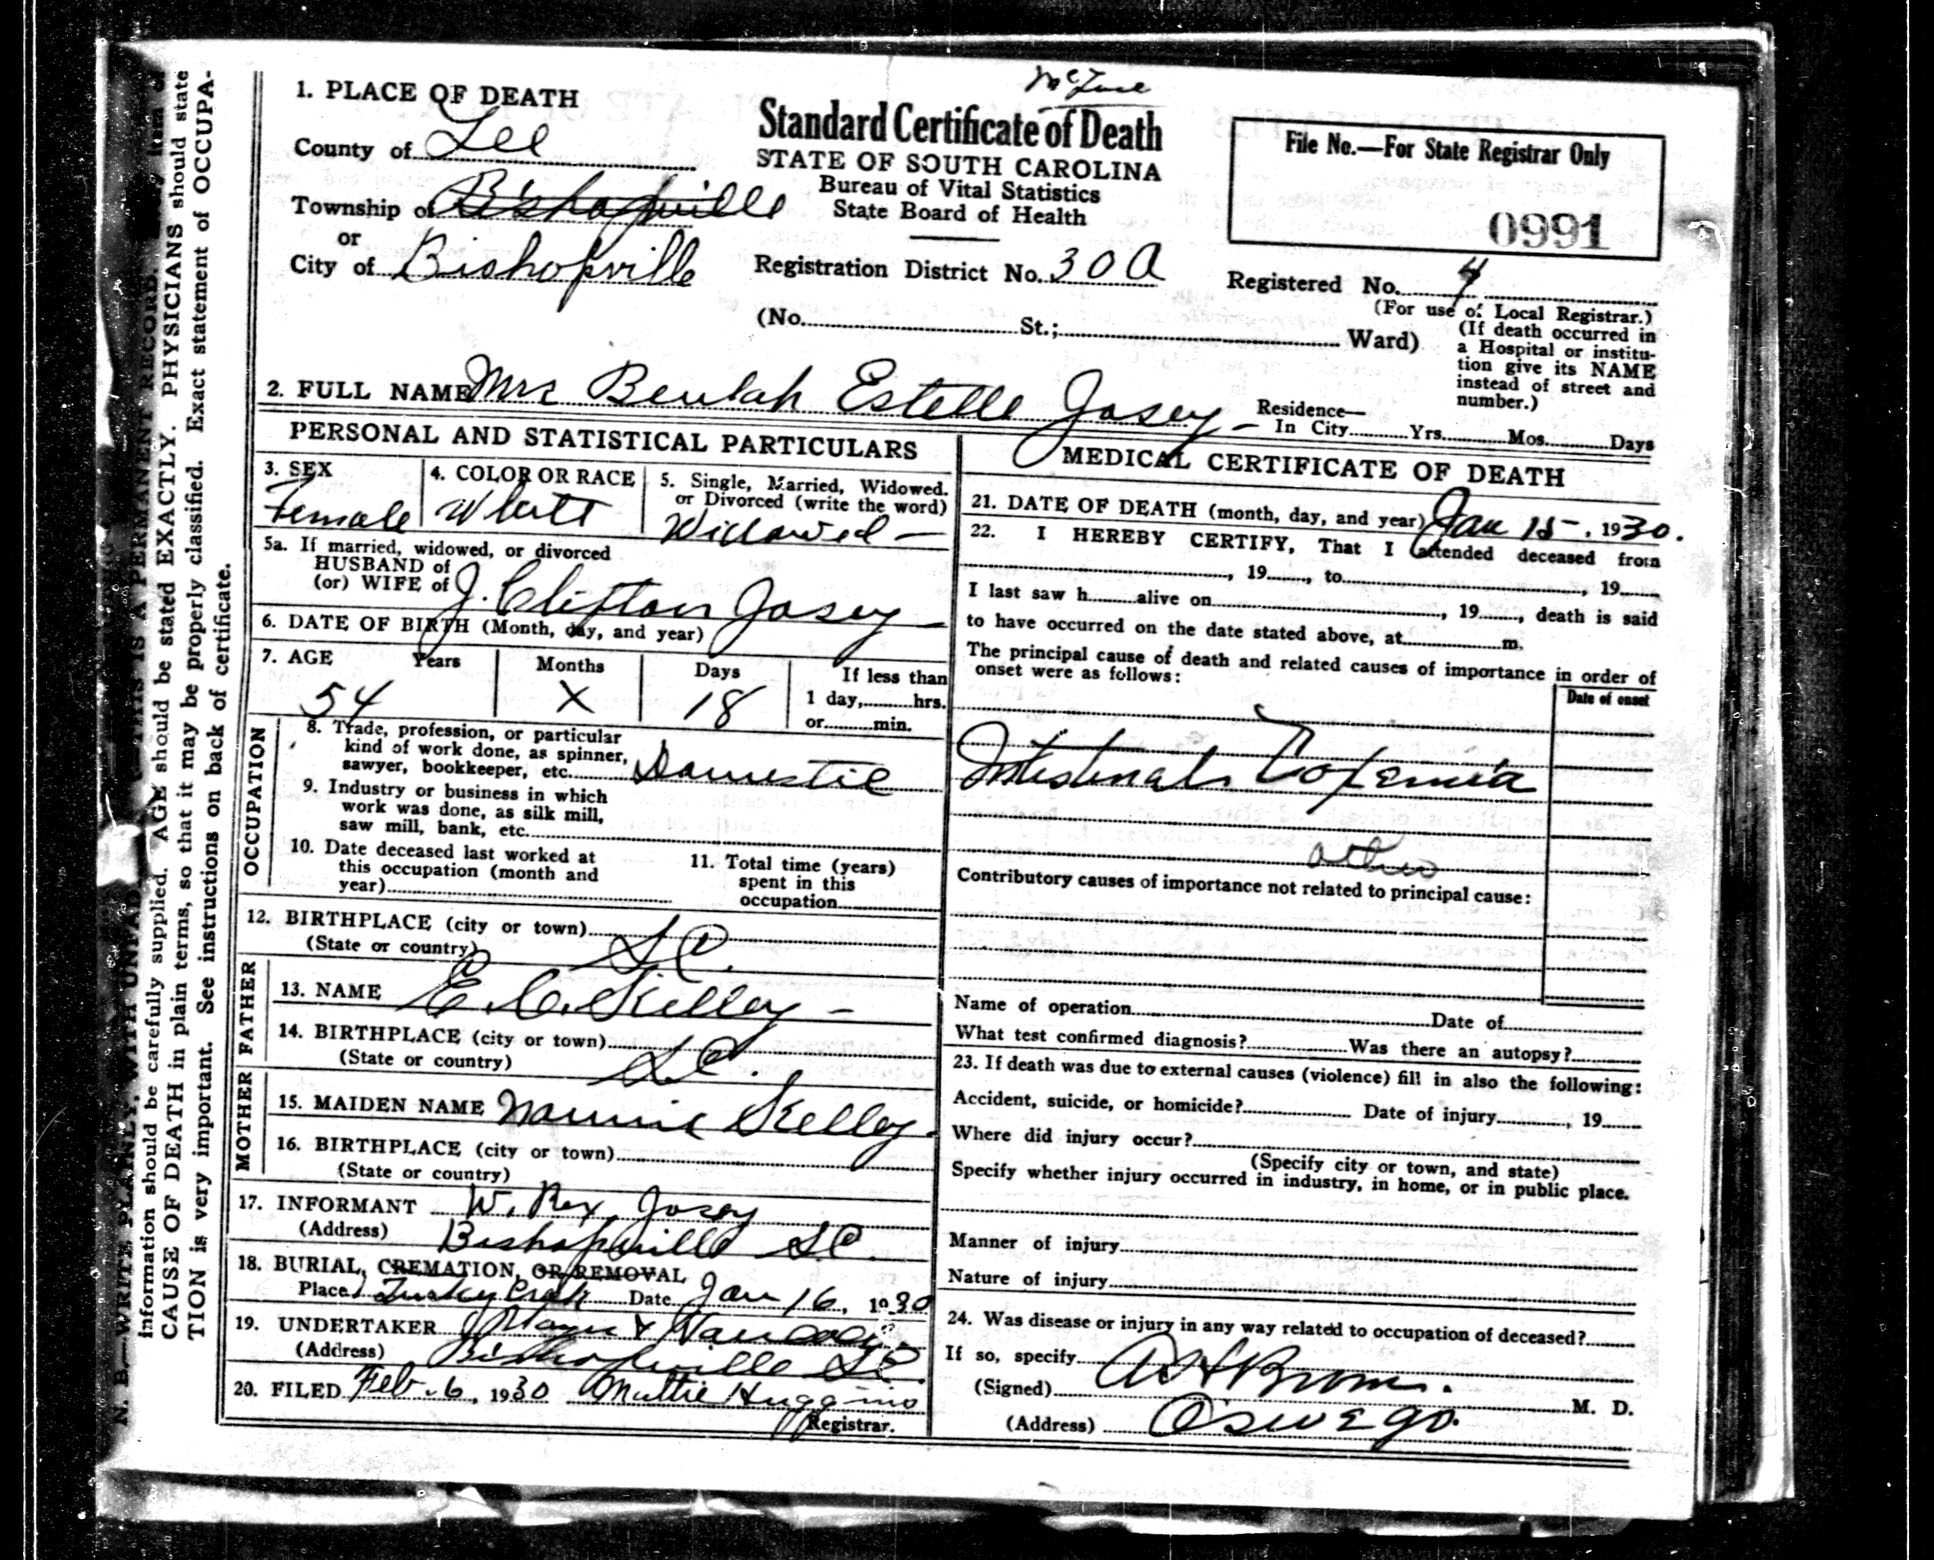 McLure
1. PLACE OF DEATH
County of Lee
Township of Bishopville
or
City of Bishopville
Standard Certificate of Death
STATE OF SOUTH CAROLINA
Bureau of Vital Statistics
State Board of Health
File No.—For State Registrar Only
0991
Registration District No. 30 a
Registered No. 4
(For use of Local Registrar.)
(No. St.; Ward)
(If death occurred in
a Hospital or institu-
tion give its NAME
instead of street and
number.)
2. FULL NAME Mrs Beulah Estelle Josey
Residence—
In City Yrs. Mos. Days
PERSONAL AND STATISTICAL PARTICULARS
3. SEX
Female
4. COLOR OR RACE
White
5. Single, Married, Widowed,
or Divorced (write the word)
Widowed
5a. If married, widowed, or divorced
HUSBAND of
(or) WIFE of J. Clifton Josey
6. DATE OF BIRTH (Month, day, and year)
7. AGE Years Months Days If less than
54 X 18 1 day, hrs.
or min.
OCCUPATION
8. Trade, profession, or particular
kind of work done, as spinner,
sawyer, bookkeeper, etc. Domestic
9. Industry or business in which
work was done, as silk mill,
saw mill, bank, etc.
10. Date deceased last worked at
this occupation (month and
year)
11. Total time (years)
spent in this
occupation
12. BIRTHPLACE (city or town)
(State or country) S.C.
FATHER
13. NAME E. C. Skelley
14. BIRTHPLACE (city or town)
(State or country) S.C.
MOTHER
15. MAIDEN NAME Nannie Skelley
16. BIRTHPLACE (city or town)
(State or country)
17. INFORMANT W. Rex Josey
(Address) Bishopville S.C.
18. BURIAL, CREMATION, OR REMOVAL
Place Turkey Creek Date Jan 16, 1930
19. UNDERTAKER
(Address) Bishopville S.C.
20. FILED Feb. 6, 1930 Mattie Huggins
Registrar.
MEDICAL CERTIFICATE OF DEATH
21. DATE OF DEATH (month, day, and year) Jan 15, 1930.
22. I HEREBY CERTIFY, That I attended deceased from
, 19 , to , 19
I last saw h alive on , 19 , death is said
to have occurred on the date stated above, at m.
The principal cause of death and related causes of importance in order of
onset were as follows:
Date of onset
Intestinal Toxemia
other
Contributory causes of importance not related to principal cause:
Name of operation Date of
What test confirmed diagnosis? Was there an autopsy?
23. If death was due to external causes (violence) fill in also the following:
Accident, suicide, or homicide? Date of injury , 19
Where did injury occur?
(Specify city or town, and state)
Specify whether injury occurred in industry, in home, or in public place.
Manner of injury
Nature of injury
24. Was disease or injury in any way related to occupation of deceased?
If so, specify
(Signed) A H Brown. M. D.
(Address) Oswego.
N. B.—WRITE PLAINLY, WITH UNFAD THIS IS A PERMANENT RECORD.
information should be carefully supplied. AGE should be stated EXACTLY. PHYSICIANS should state
CAUSE OF DEATH in plain terms, so that it may be properly classified. Exact statement of OCCUPA-
TION is very important. See instructions on back of certificate.